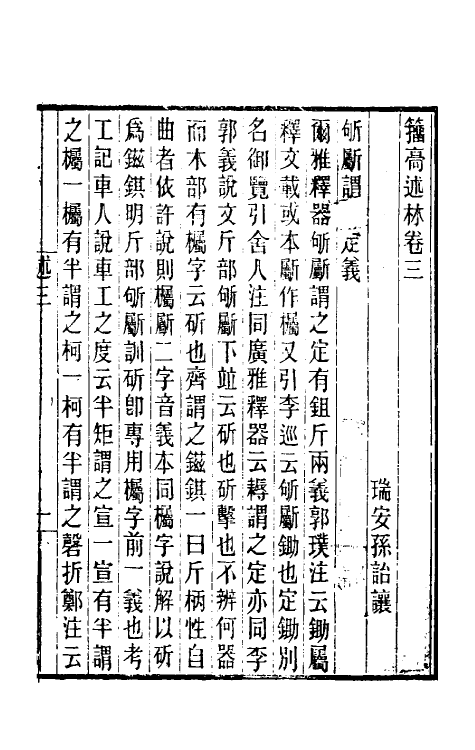 籀高述林卷三
瑞安孫詒讓
斪斸謂　定義
爾雅釋器斪斸謂之定有鉏斤兩義郭璞注云鋤屬
釋文載或本斸作欘又引李巡云斪斸鋤也定鋤別
名御覽引舍人注同廣雅釋器云耨謂之定亦同李
郭義說文斤部斪斸下竝云斫也斫擊也不辨何器
而木部有欘字云斫也齊謂之鎡錤一曰斤柄性自
曲者依許說則欘斸二字音義本同欘字說解以斫
爲鎡錤明斤部斪斸訓斫卽專用欘字前一義也考
工記車人說車工之度云半矩謂之宣一宣有半謂
之欘一欘有半謂之柯一柯有半謂之磬折鄭注云
述三
一